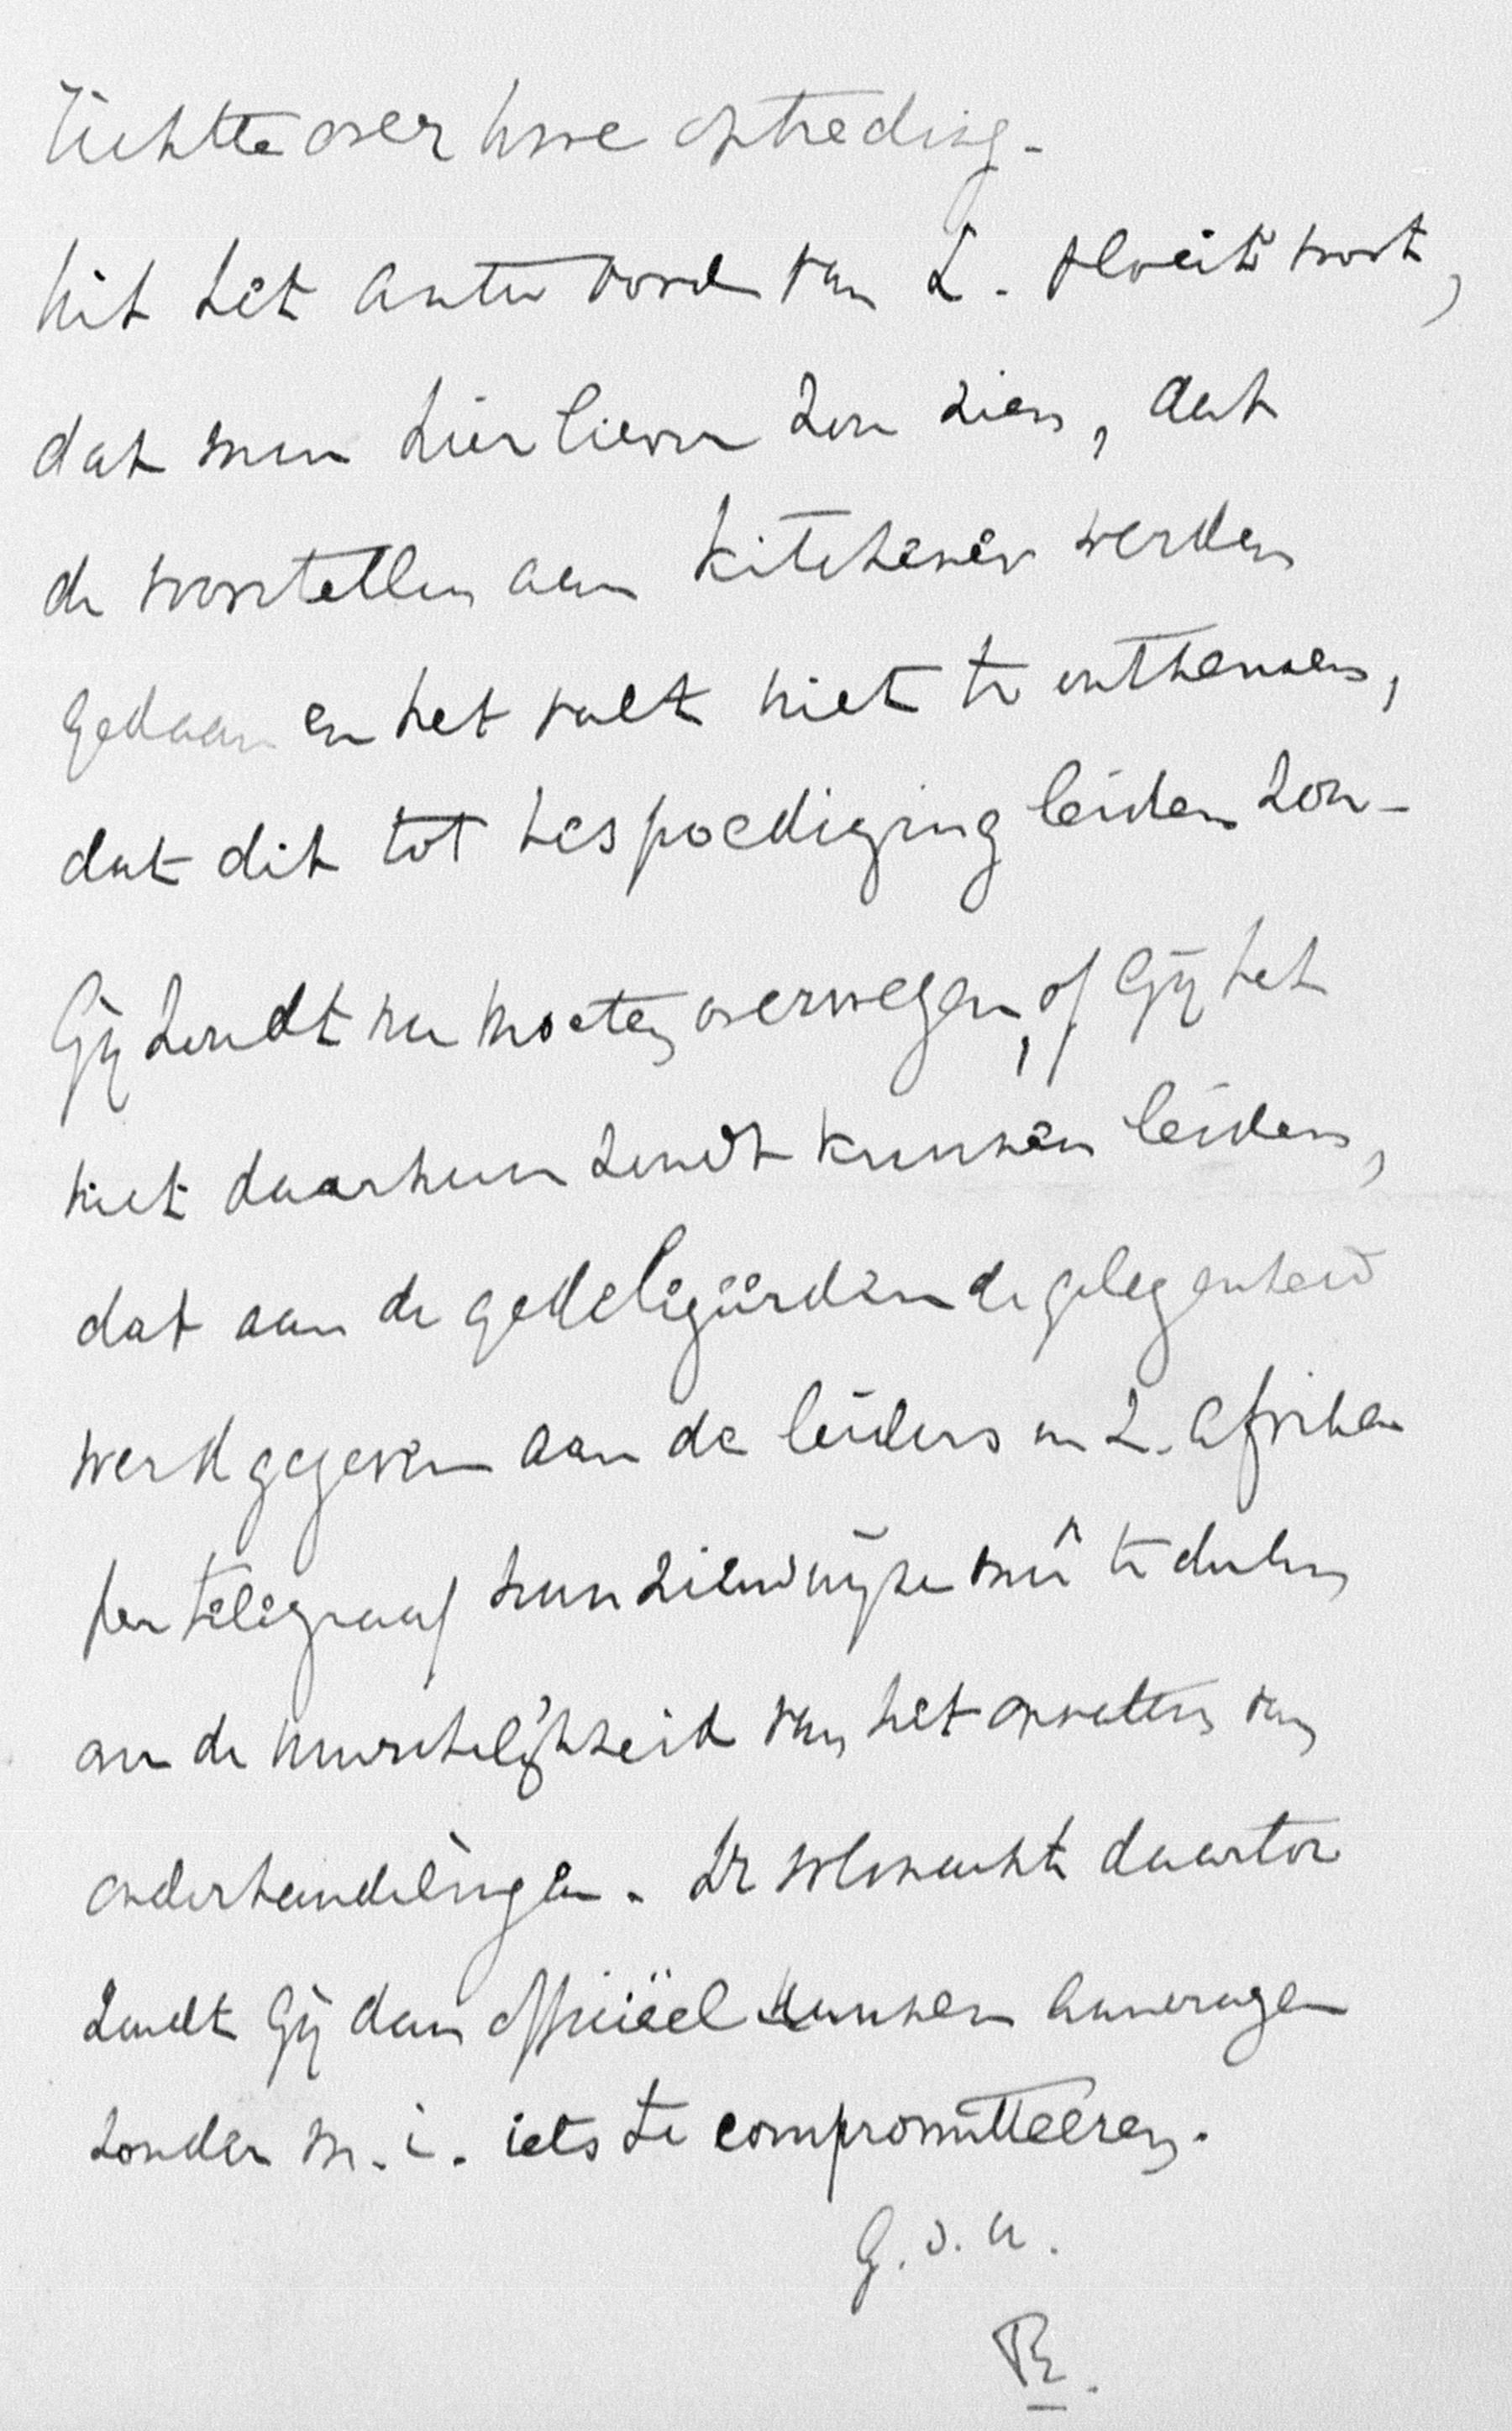 lichtte over Uwe optreding.
Uit het antwoord van L. vloeit voort,
dat men hier liever zou zien, dat
de voorstellen aan Kitchener werden
gedaan en het valt niet te ontkennen,
dat dit tot bespoediging leiden zou.
Gij zoudt nu moeten overwegen, of Gij het
niet daarheen zoudt kunnen leiden,
dat aan de gedelegeerden de gelegenheid
werd gegeven aan de leiders in Z. Afrika
per telegraaf hun zienswijze mee te deelen
over de wenschelijkheid van het openen van
onderhandelingen. De volmacht daartoe
zoudt Gij dan officiëel kunnen aanvragen
zonder m. i. iets te compromitteeren.